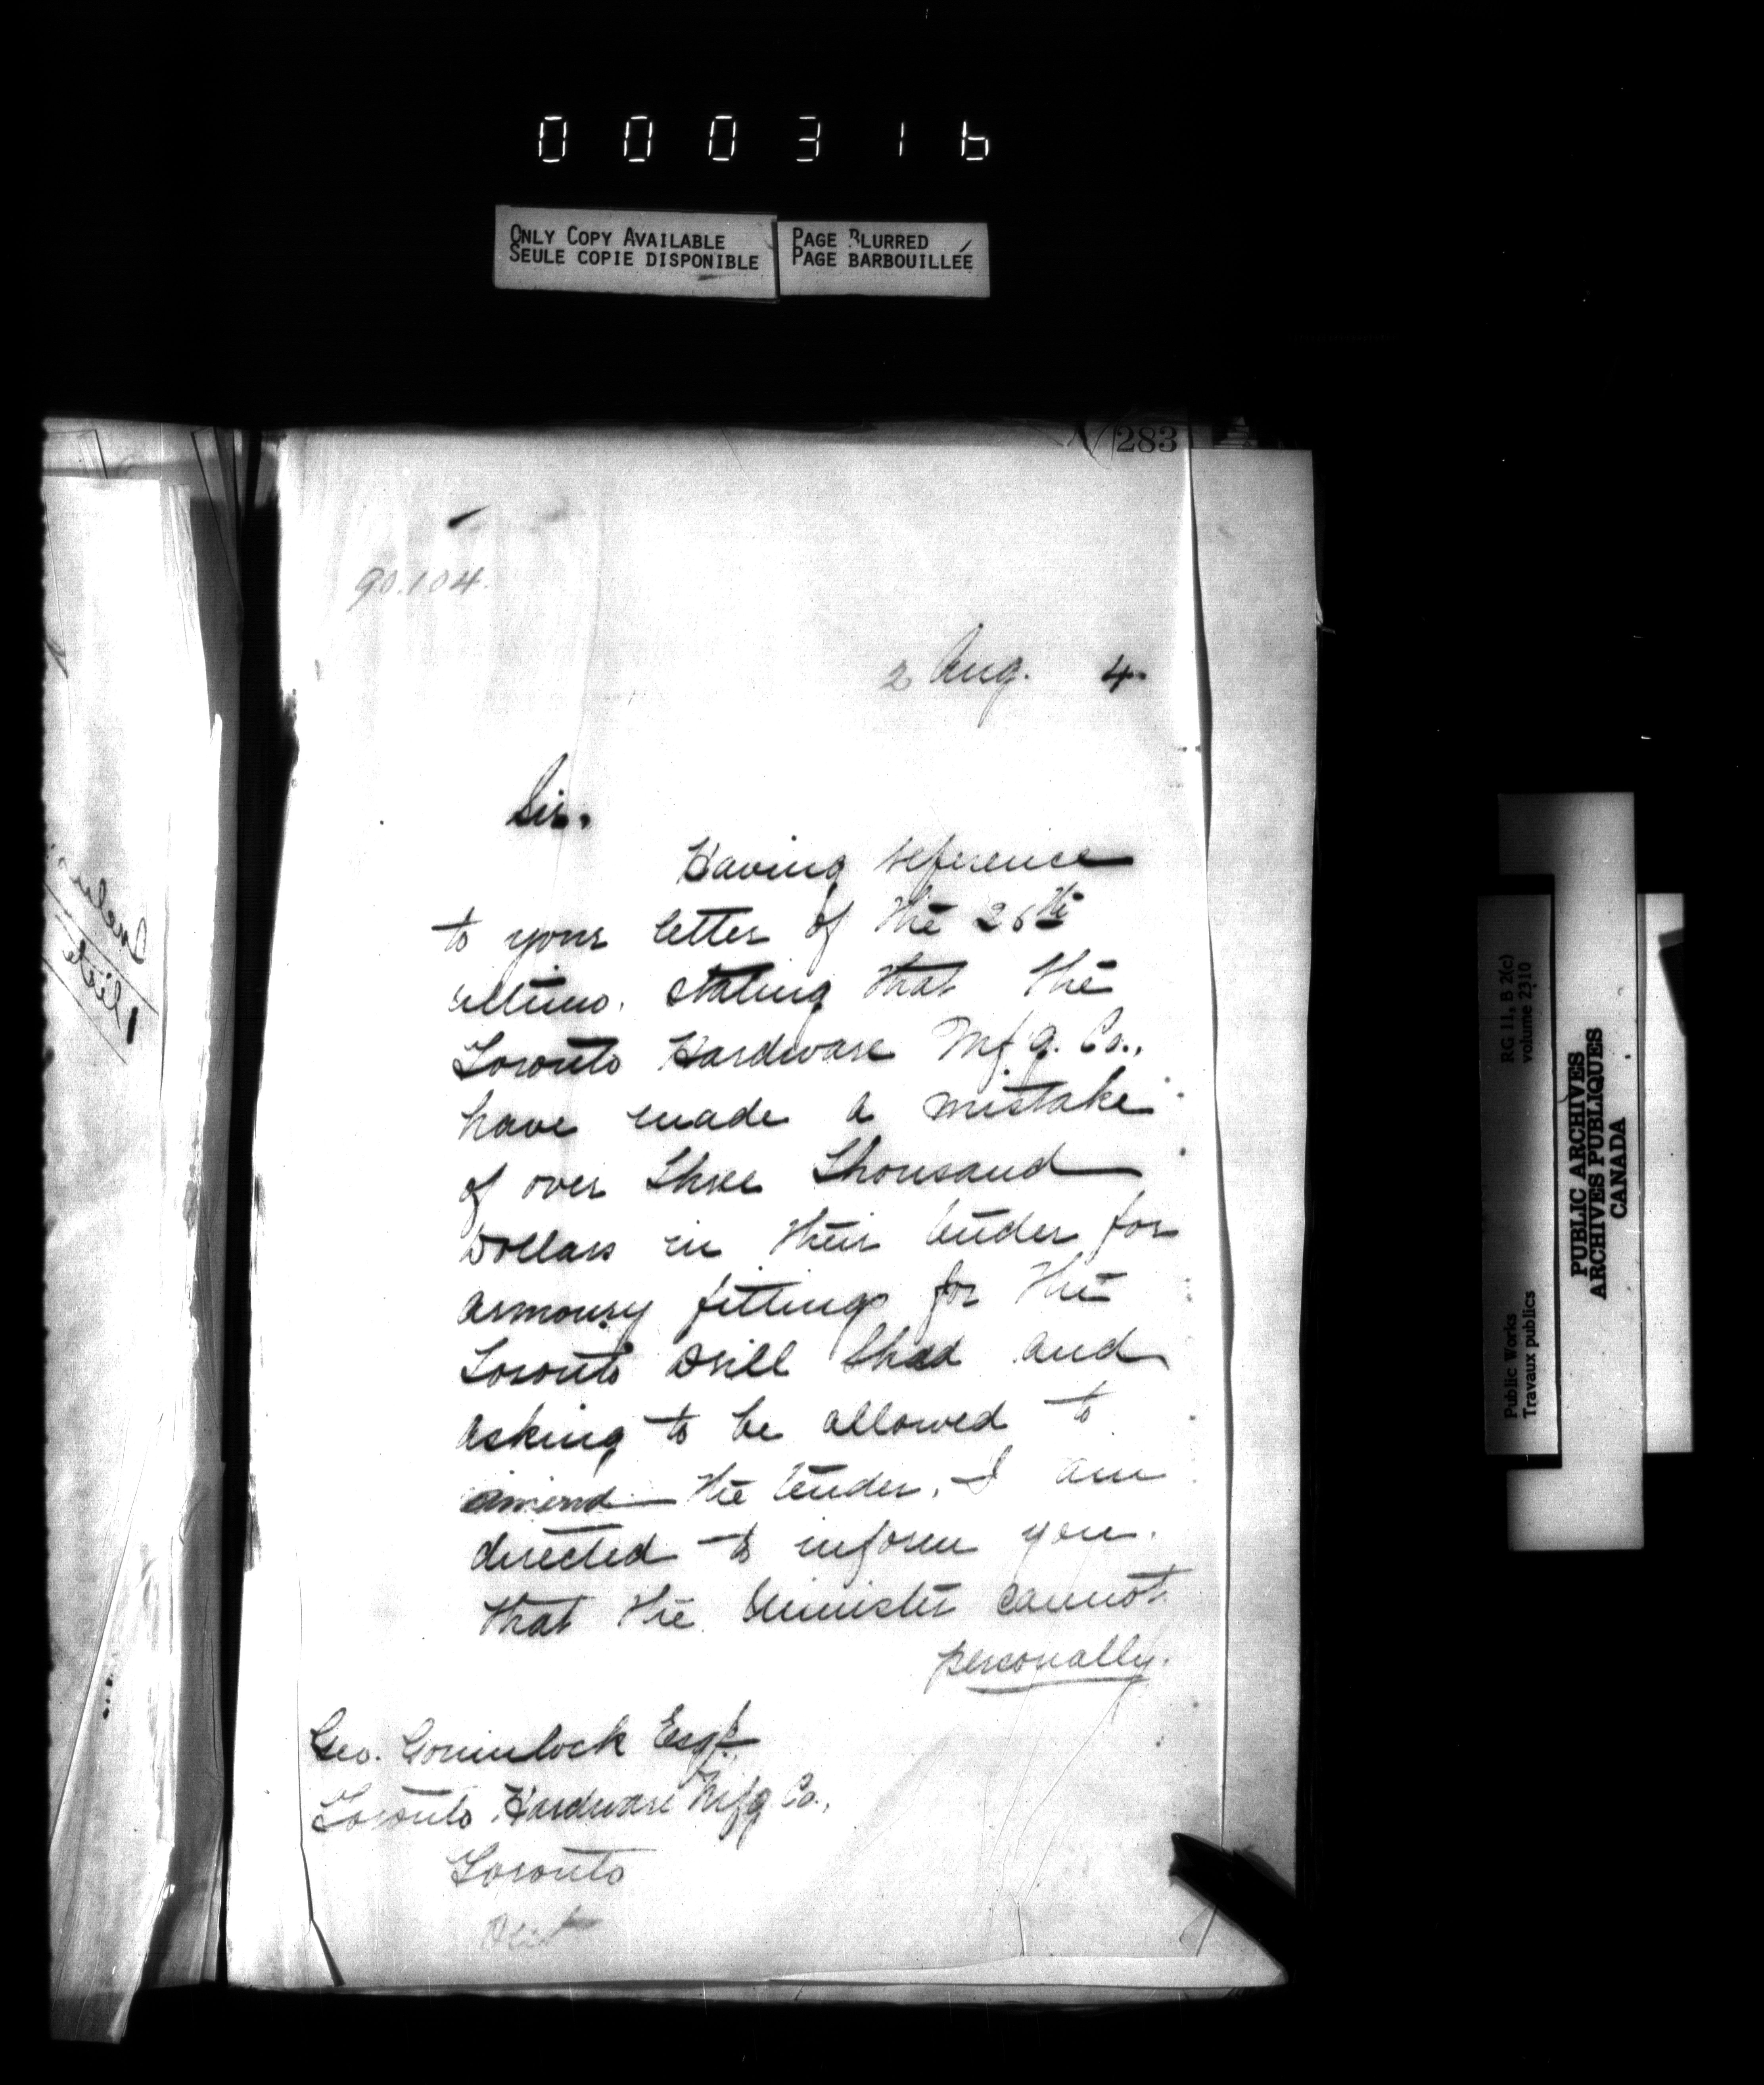 000316
ONLY COPY AVAILABLE
SEULE COPIE DISPONIBLE
PAGE BLURRED
PAGE BARBOUILLÉE
283
90.104.
2 Aug. 4.
Sir.
Having reference
to your letter of the 26th
ultimo. stating that the
Toronto Hardware Mfg. Co.,
have made a mistake
of over Three Thousand
Dollars in their tender for
armoury fittings for the
Toronto Drill Shed and
asking to be allowed to
amend the tender, I am
directed to inform you.
that the Minister cannot
personally.
Geo. Gouinlock Esqr.
Toronto Hardware Mfg. Co.,
Toronto
Ont
RG 11, B 2(c)
volume 2310
Public Works
Travaux publics
PUBLIC ARCHIVES
ARCHIVES PUBLIQUES
CANADA